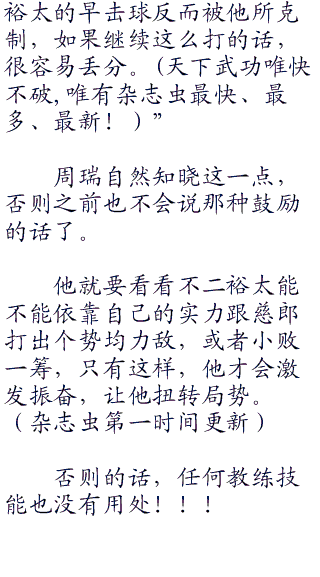 裕太的早击球反而被他所克
制，如果继续这么打的话，
很容易丢分。(天下武功唯快
不破,唯有杂志虫最快、最
多、最新！)”
周瑞自然知晓这一点，
否则之前也不会说那种鼓励
的话了。
他就要看看不二裕太能
不能依靠自己的实力跟慈郎
打出个势均力敌，或者小败
一筹，只有这样，他才会激
发振奋，让他扭转局势。
（杂志虫第一时间更新）
否则的话，任何教练技
能也没有用处！！！